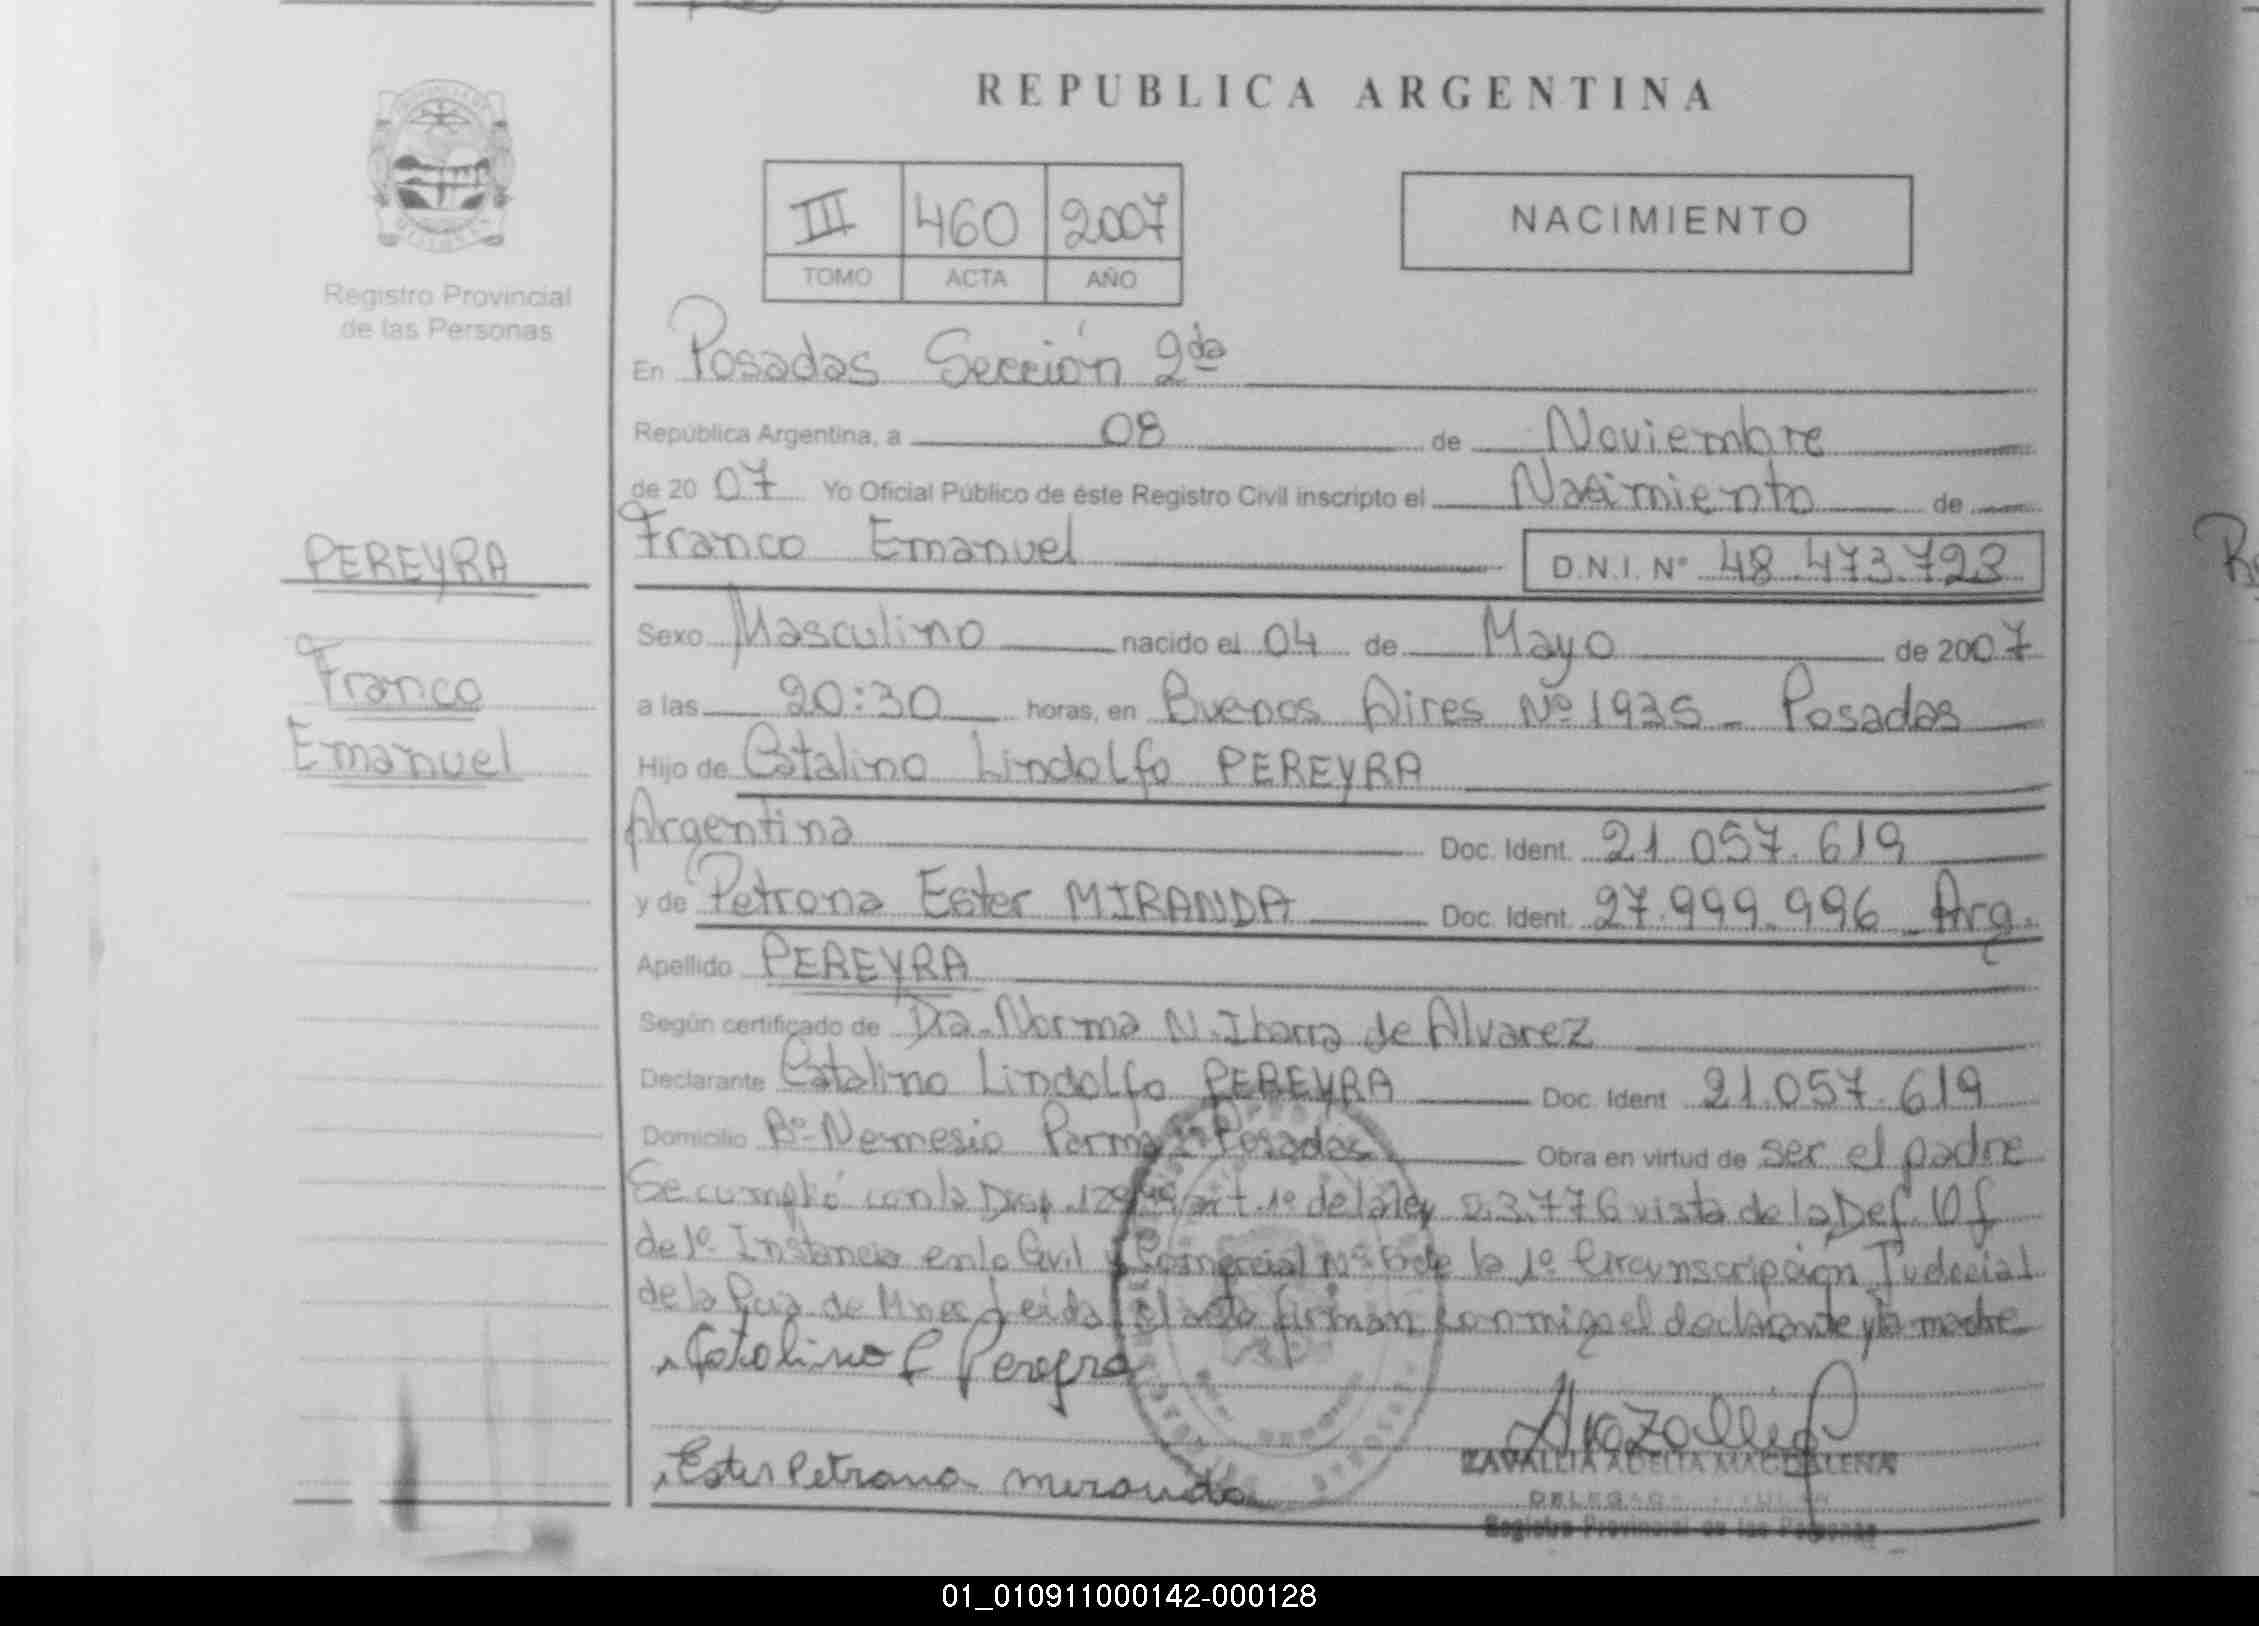 REPUBLICA ARGENTINA
III 460 2007
TOMO ACTA AÑO
NACIMIENTO
Registro Provincial
de las Personas
PEREYRA
Franco
Emanuel
En Posadas Sección 2da
República Argentina, a 08 de Noviembre
de 2007 Yo Oficial Público de éste Registro Civil inscripto el Nacimiento de
Franco Emanuel D.N.I. Nº 48.473.723
Sexo Masculino nacido el 04 de Mayo de 2007
a las 20:30 horas, en Buenos Aires Nº 1935 - Posadas
Hijo de Catalino Lindolfo PEREYRA
Argentina Doc. Ident. 21.057.619
y de Petrona Ester MIRANDA Doc. Ident. 27.999.996 Arg.
Apellido PEREYRA
Según certificado de Dra. Norma N. Ibarra de Alvarez
Declarante Catalino Lindolfo PEREYRA Doc. Ident 21.057.619
Domicilio Bº Nemesio Parma Posadas Obra en virtud de ser el padre
Se cumplió con la Disp. art. 1º de la ley 23.776 vista de la Def. Of
de 1º Instancia en lo Civil y Comercial Nº de la 1º Circunscripción Judicial
de la Pcia de Mnes Leida el acta firman conmigo el declarante y la madre
Catalino L Pereyra
Ester Petrona Miranda
ZAVALLIA ADELIA MAGDALENA
Registro Provincial de las Personas
01_010911000142-000128